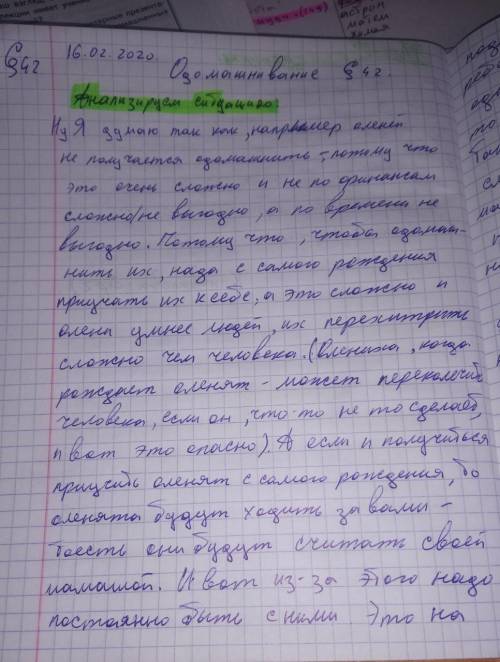 §42 16.02.2020.
Одомашнивание §42.
Анализируем ситуацию:
Ну я думаю так как, например оленей
не получается одомашнить - потому что
это очень сложно и не по финансам
сложно/не выгодно, а по времени не
выгодно. Потому что, чтобы одомаш-
нить их, нада с самого рождения
приучать их к себе, а это сложно и
олени умнее людей, их перехитрить
сложно чем человека. (Олениха, когда
рождает оленят - может перекалечить
человека, если он, что-то не то сделает,
и вот это опасно). А если и получиться
приучить оленят с самого рождения, то
оленята будут ходить за вами -
тоесть они будут считать своей
мамашой. И вот из-за этого надо
постоянно быть с ними. Это на